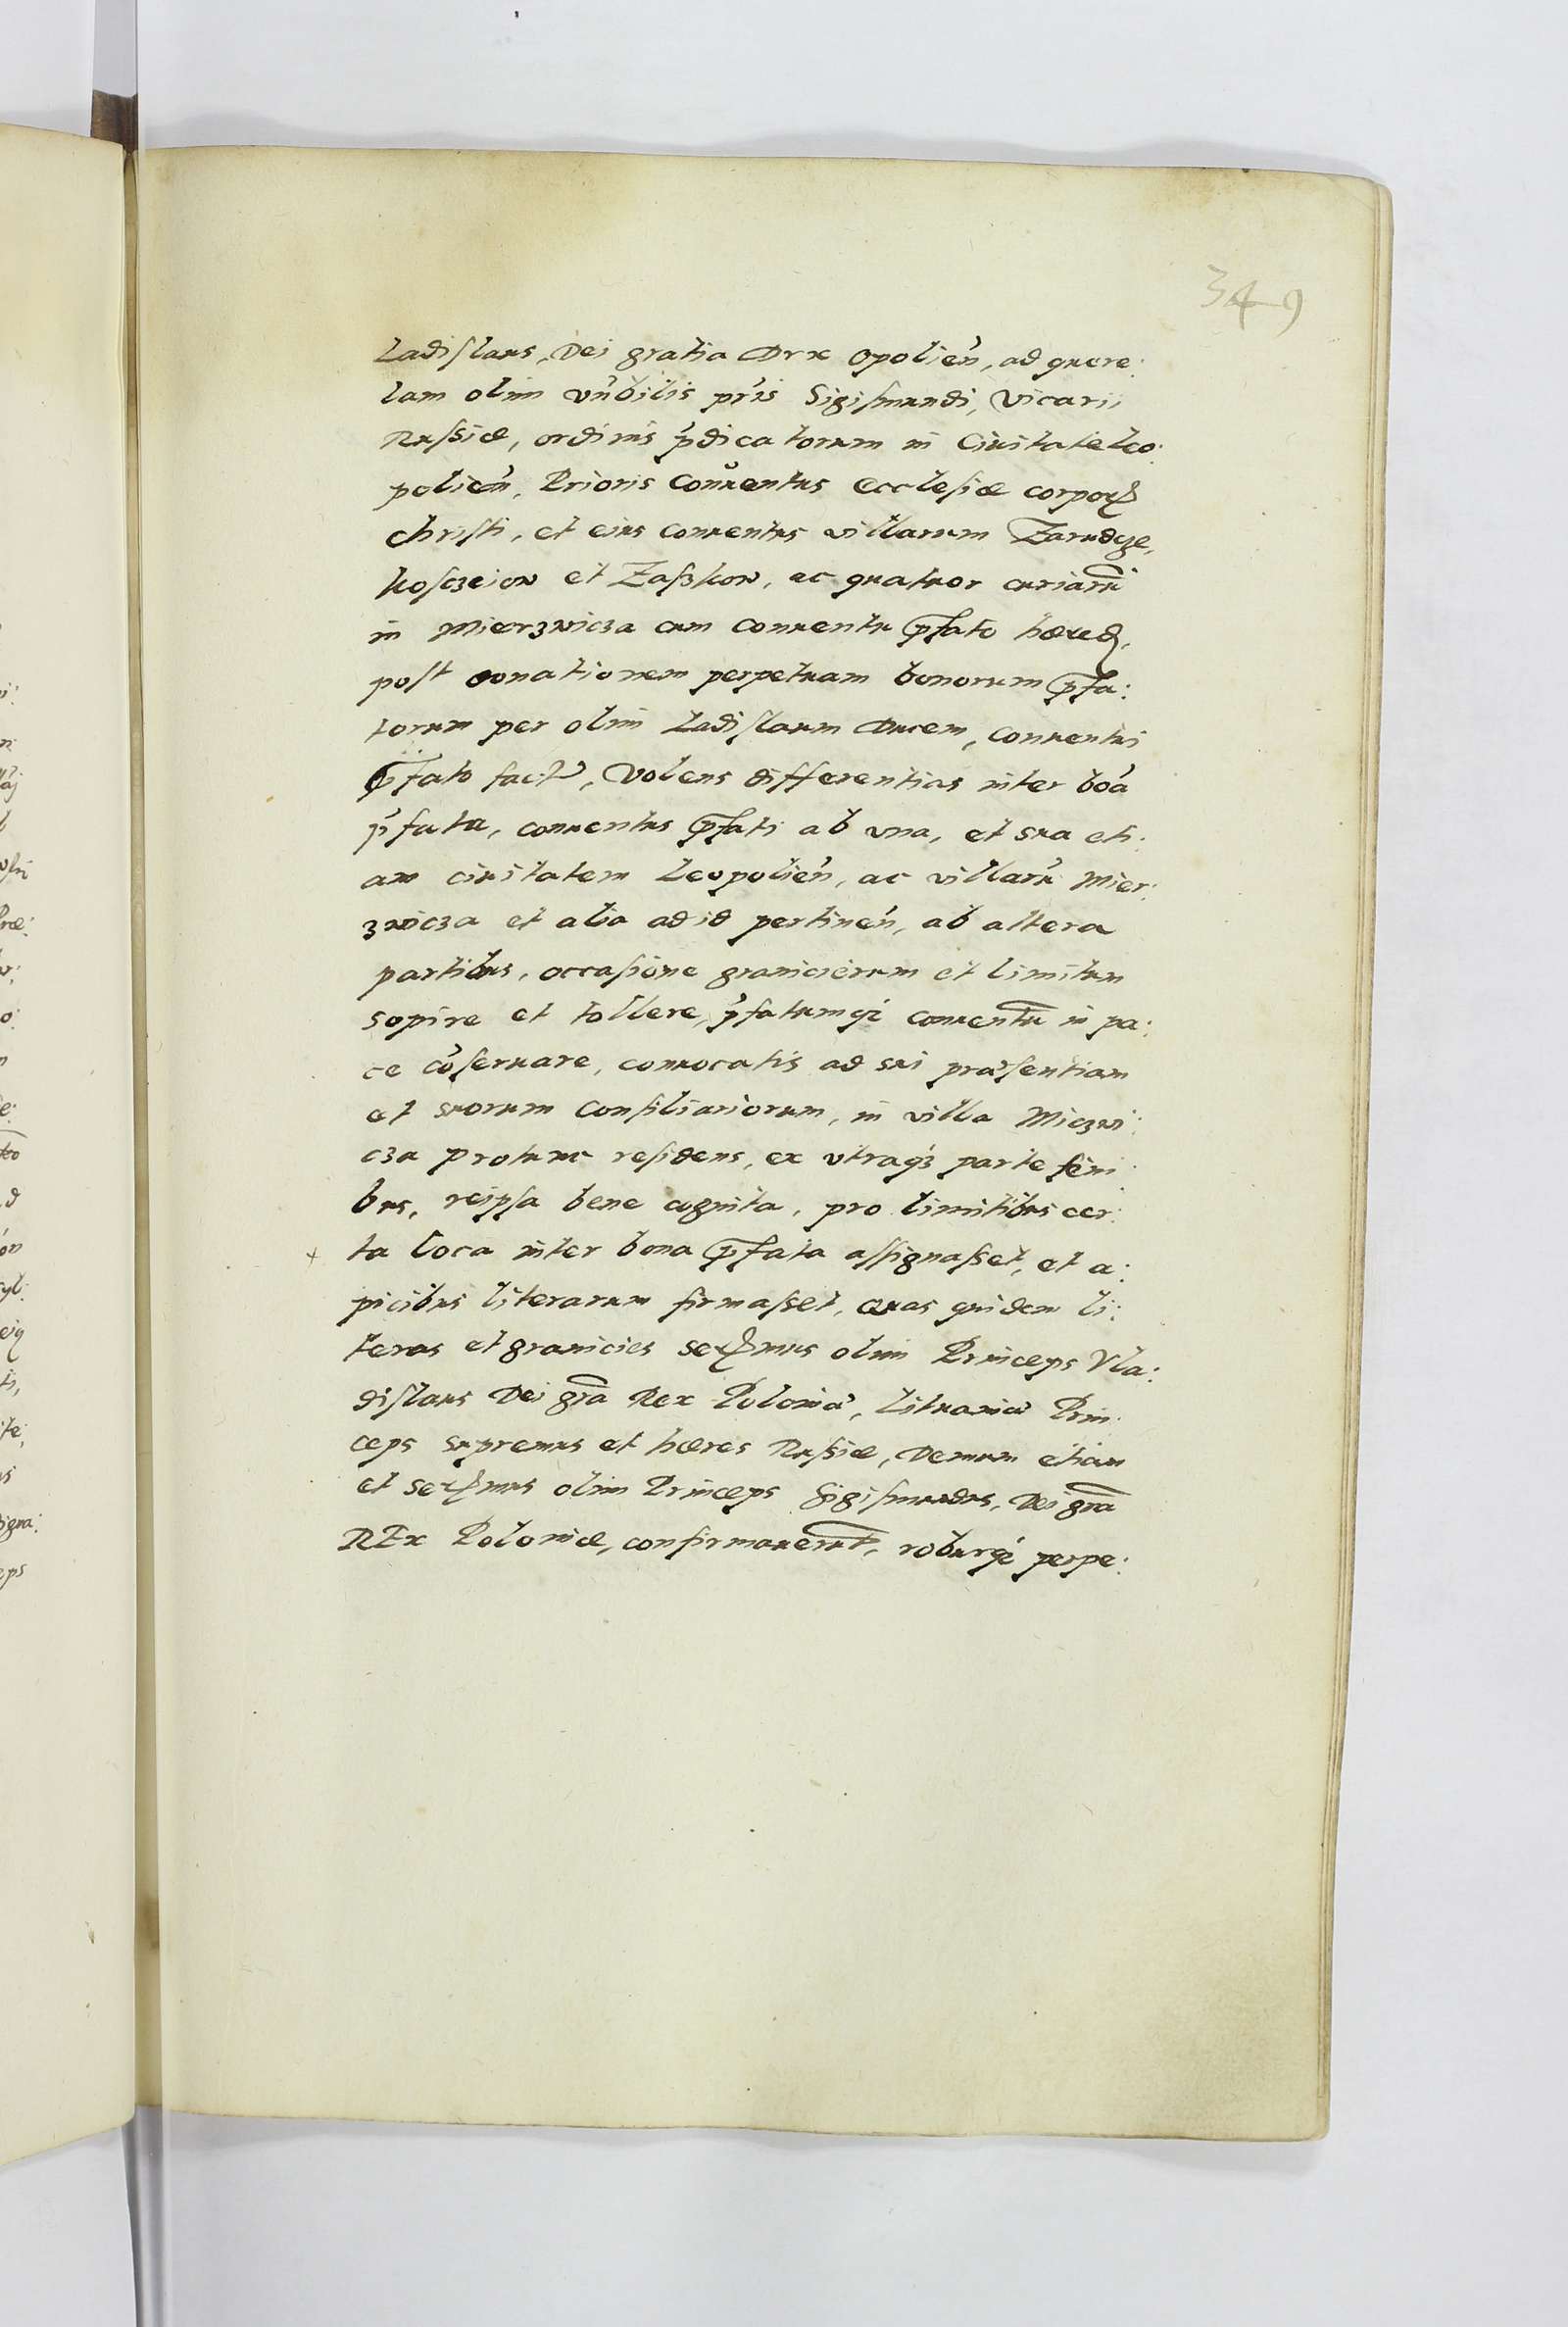 349
Ladislaus, Dei gratia Dux Opolieñ, ad quere:
lam olim vñbilis pris Sigismundi, Vicarii
Russiæ, ordinis pdicatorum in Ciuitate Leo:
polieñ, Prioris Conuentus Ecclesiæ corporis
Christi, et eius conuentus villarum Zarudcze,
Kosczeiow et Zaszkow, ac quatuor curiarũ
in Mierzwicza cum conuentu pfato hæred,
post donationem perpetuam bonorum pfa:
torum per olim Ladislaum Ducem, conuentui
pfato fact, Volens differentias inter boa
pfata, conuentus pfati ab vna, et sua eti:
am ciuitatem Leopolieñ, ac villarũ Mier:
zwicza et alia ad id pertineñ, ab altera
partibus, occasione granicierum et limitum
sopire et tollere, pfatumq; conuentũ in pa:
ce cõseruare, conuocatis ad sui præsentiam
et suorum consiliariorum, in villa Miczwi:
cza protunc residens, ex vtraq; parte seni:
bus, reipsa bene cognita, pro limitibus cer:
+ ta loca inter bona pfata assignasset, et a:
picibus literarum firmasset, Quas quidem li:
teras et granicies sermus olim Princeps Vla:
dislaus Dei gra Rex Poloniæ, Lituaniæ Prin:
ceps supremus et hæres Russiæ, Demum etiam
et sermus olim Princeps Sigismundus, Dei gra
REx Poloniæ, confirmauerunt, roburq; perpe: